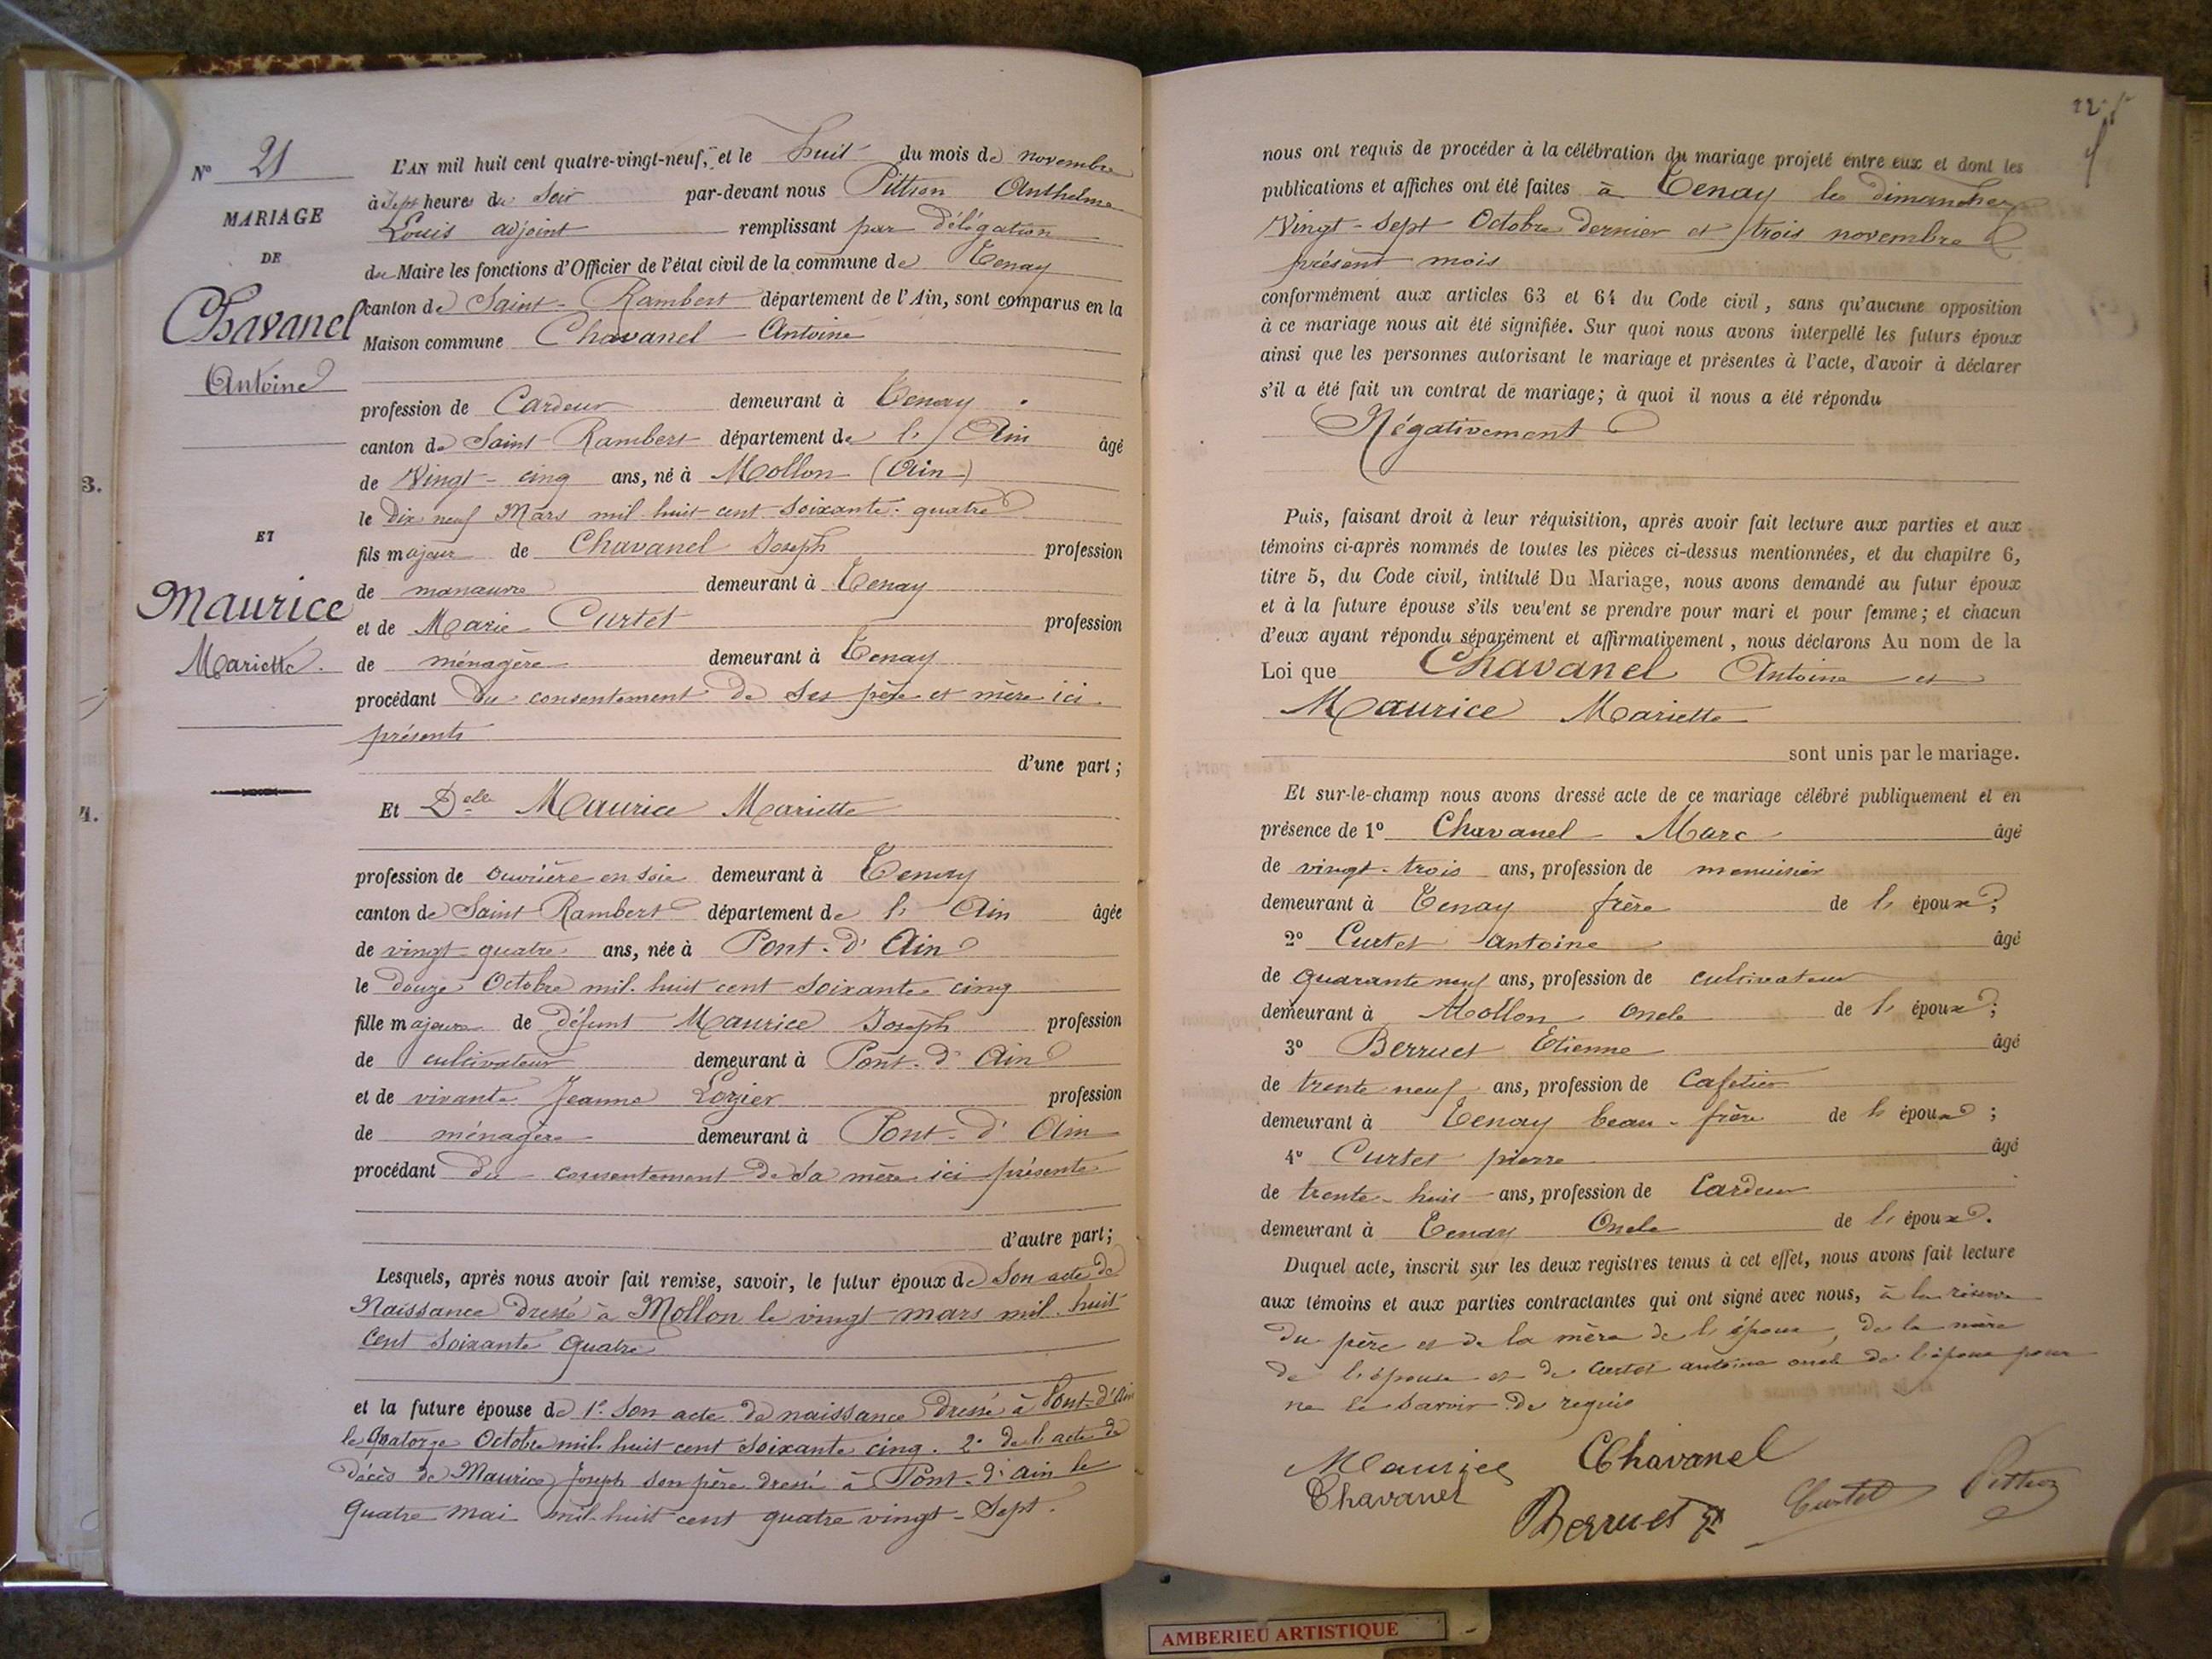 N° 21
MARIAGE
DE
Chavanel
Antoine
ET
Maurice
Mariette.
3.
4.
L'AN mil huit cent quatre-vingt-neuf, et le huit du mois de novembre
à sept heures du soir par-devant nous Pittion Anthelme
Louis adjoint remplissant par délégation
du Maire les fonctions d'Officier de l'état civil de la commune de Tenay
canton de Saint-Rambert département de l'Ain, sont comparus en la
Maison commune Chavanel Antoine
profession de Cardeur demeurant à Tenay
canton de Saint Rambert département de l'Ain âgé
de Vingt-cinq ans, né à Mollon (Ain)
le dix neuf Mars mil huit cent soixante-quatre
fils majeur de Chavanel Joseph profession
de manœuvre demeurant à Tenay
et de Marie Curtet profession
de ménagère demeurant à Tenay
procédant du consentement de ses père et mère ici
présents
d'une part;
Et Delle Maurice Mariette
profession de ouvrière en soie demeurant à Tenay
canton de Saint Rambert département de l'Ain âgée
de vingt-quatre ans, née à Pont-d'Ain
le douze Octobre mil huit cent soixante cinq
fille majeure de défunt Maurice Joseph profession
de cultivateur demeurant à Pont-d'Ain
et de vivante Jeanne Lozier profession
de ménagère demeurant à Pont-d'Ain
procédant du consentement de sa mère ici présente
d'autre part;
Lesquels, après nous avoir fait remise, savoir, le futur époux de son acte de
Naissance dressé à Mollon le vingt mars mil huit
cent soixante quatre
et la future épouse de 1° son acte de naissance dressé à Pont-d'Ain
le Quatorze Octobre mil huit cent soixante cinq. 2° de l'acte de
décès de Maurice Joseph son père dressé à Pont-d'Ain le
quatre mai mil huit cent quatre vingt-Sept.
nous ont requis de procéder à la célébration du mariage projeté entre eux et dont les
publications et affiches ont été faites à Tenay les dimanches
Vingt-sept Octobre dernier et trois novembre
présent mois
conformément aux articles 63 et 64 du Code civil, sans qu'aucune opposition
à ce mariage nous ait été signifiée. Sur quoi nous avons interpellé les futurs époux
ainsi que les personnes autorisant le mariage et présentes à l'acte, d'avoir à déclarer
s'il a été fait un contrat de mariage; à quoi il nous a été répondu
Négativement
Puis, faisant droit à leur réquisition, après avoir fait lecture aux parties et aux
témoins ci-après nommés de toutes les pièces ci-dessus mentionnées, et du chapitre 6,
titre 5, du Code civil, intitulé Du Mariage, nous avons demandé au futur époux
et à la future épouse s'ils veulent se prendre pour mari et pour femme; et chacun
d'eux ayant répondu séparément et affirmativement, nous déclarons Au nom de la
Loi que Chavanel Antoine et
Maurice Mariette
sont unis par le mariage.
Et sur-le-champ nous avons dressé acte de ce mariage célébré publiquement et en
présence de 1° Chavanel Marc âgé
de vingt-trois ans, profession de menuisier
demeurant à Tenay frère de l'époux;
2° Curtet Antoine âgé
de quarante neuf ans, profession de cultivateur
demeurant à Mollon oncle de l'époux;
3° Berruet Etienne âgé
de trente neuf ans, profession de Cafetier
demeurant à Tenay beau-frère de l'époux;
4° Curtet pierre âgé
de trente-huit ans, profession de Cardeur
demeurant à Tenay Oncle de l'époux.
Duquel acte, inscrit sur les deux registres tenus à cet effet, nous avons fait lecture
aux témoins et aux parties contractantes qui ont signé avec nous, à la réserve
du père et de la mère de l'époux, de la mère
de l'épouse et de Curtet antoine oncle de l'époux pour
ne le savoir de requis
Maurice Chavanel
Chavanel
Berruet Curtet Pittion
AMBERIEU ARTISTIQUE